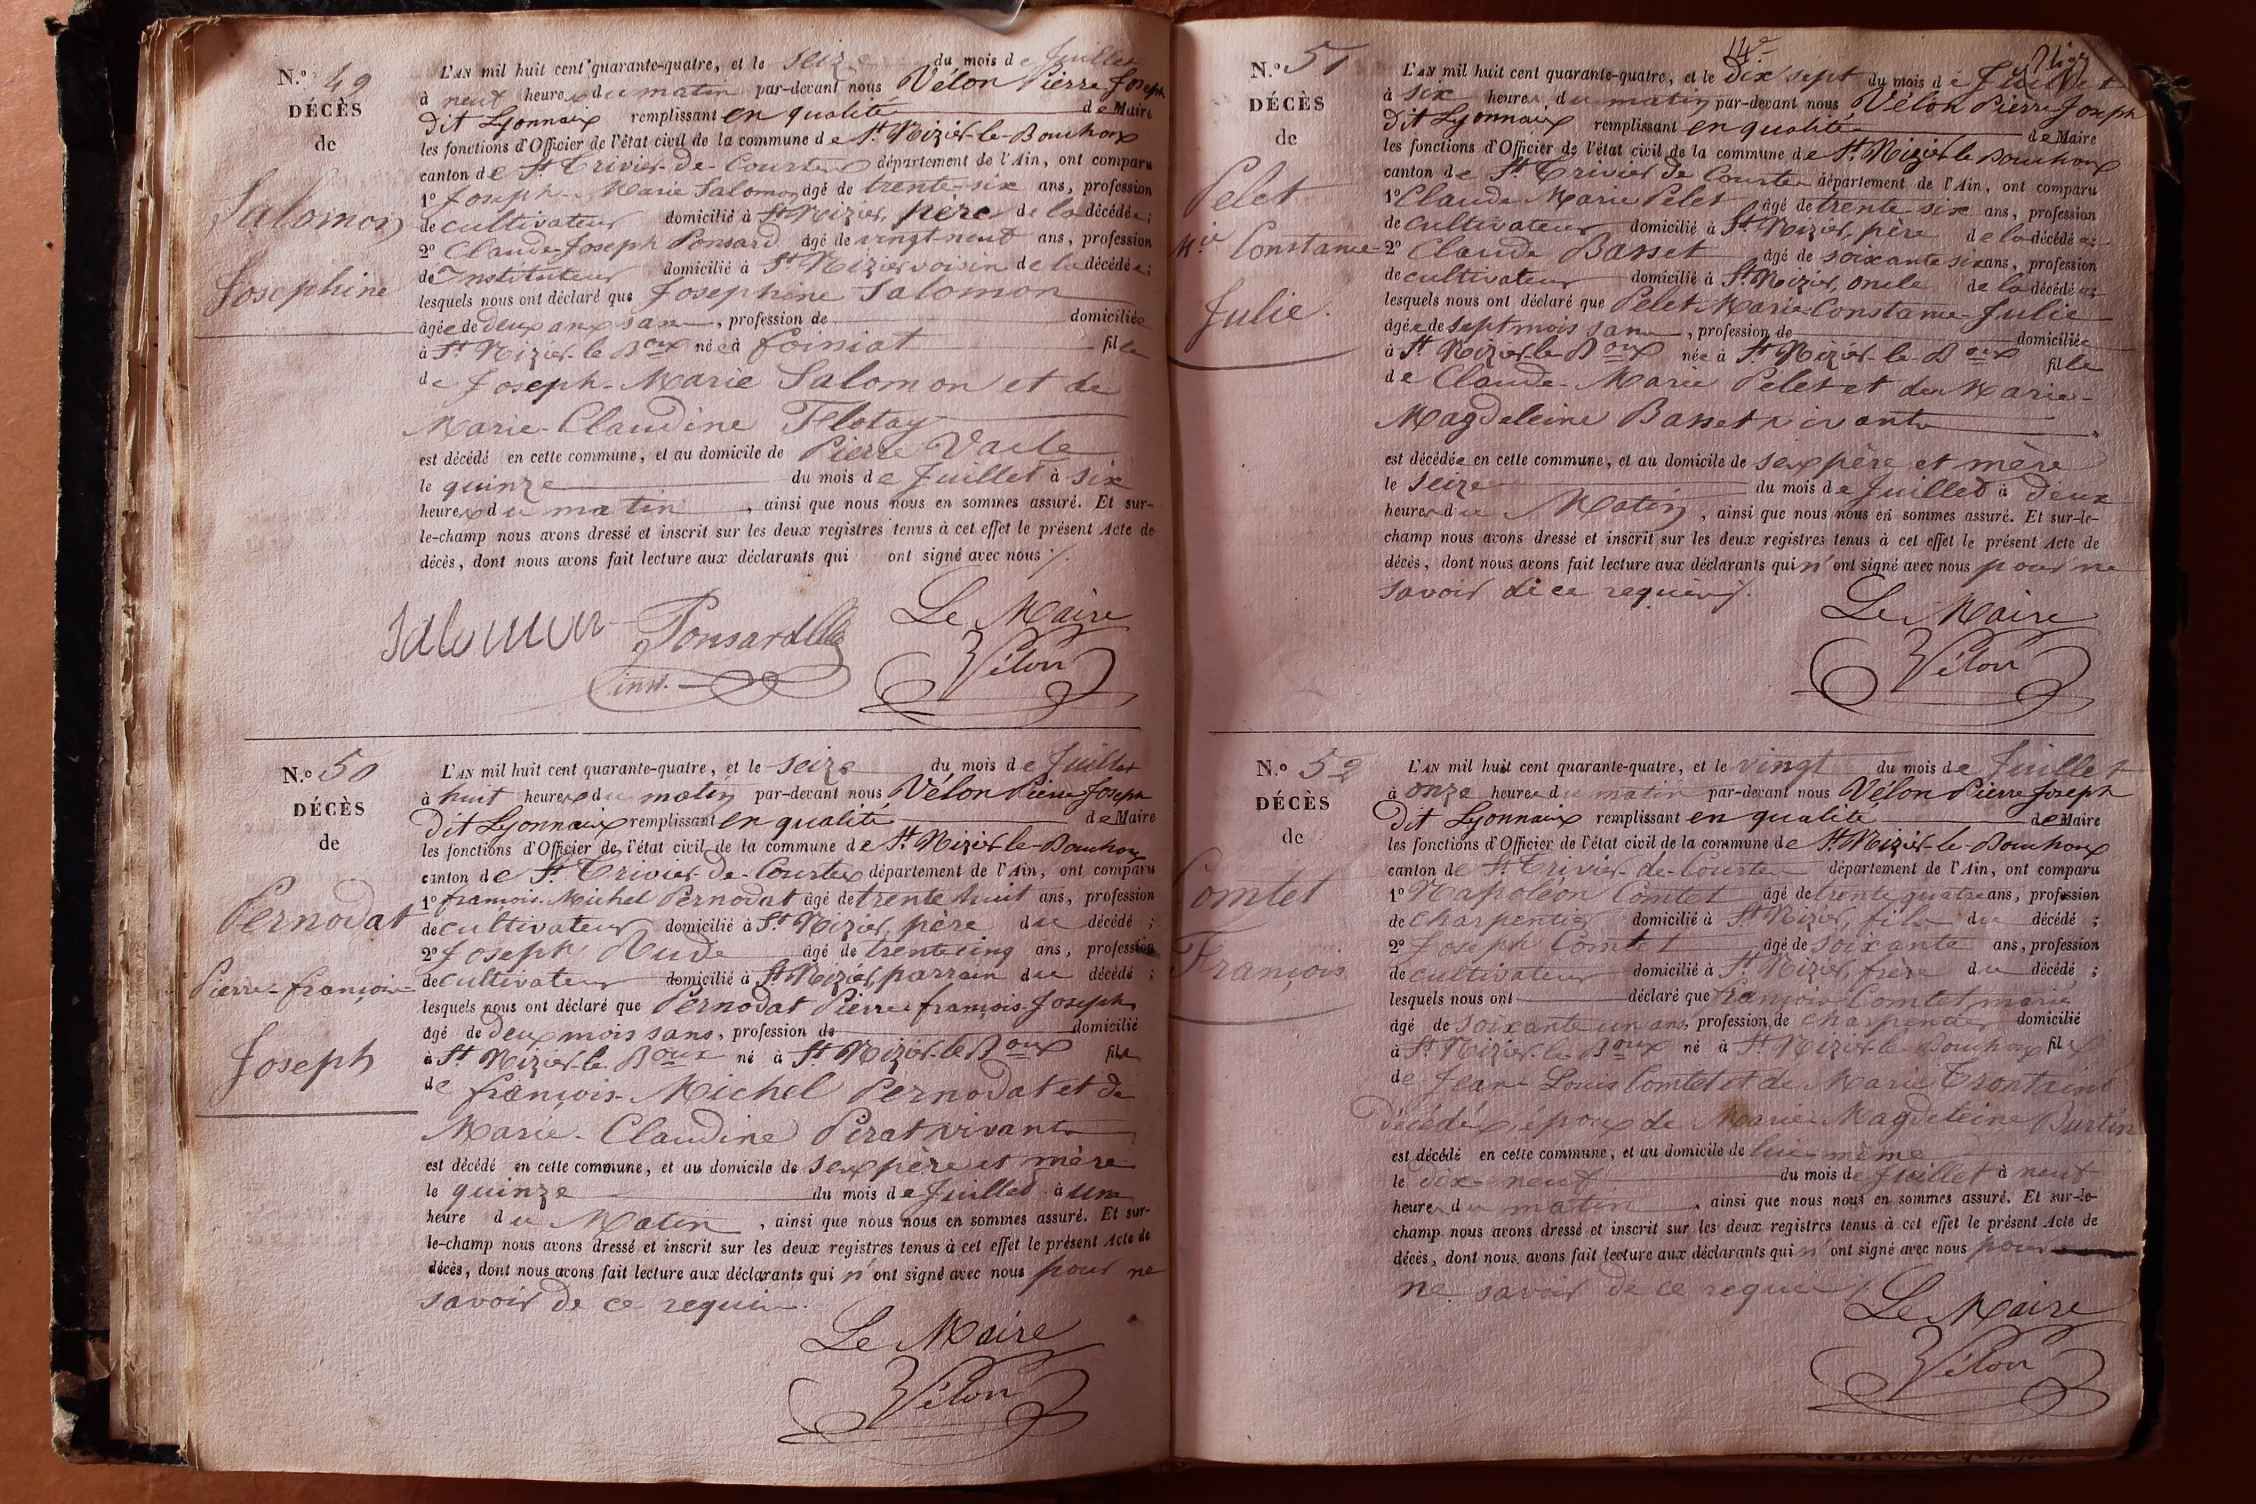 N.o 49
DÉCÈS
de
Salomon
Josephine
L'AN mil huit cent quarante-quatre, et le seize du mois de Juillet
à neuf heures du matin par-devant nous Vélon Pierre Joseph
Dit Lyonnaix remplissant en qualité de Maire
les fonctions d'Officier de l'état civil de la commune de St. Nizier-le-Bouchoux
canton de St. Trivier-de-Courtes département de l'Ain, ont comparu
1o Joseph-Marie Salomon agé de trente-six ans, profession
de cultivateur domicilié à St. Nizier, père de la décédée;
2o Claude-Joseph Ponsard agé de vingt-neuf ans, profession
de Instituteur domicilié à St Nizier voisin de la décédée;
lesquels nous ont déclaré que Josephine Salomon
âgée de deux ans sans, profession de domiciliée
à St Nizier-le-Boux née à foissiat fille
de Joseph-Marie Salomon et de
Marie-Claudine Flotay
est décédé en cette commune, et au domicile de Pierre Varle
le quinze du mois de Juillet à six
heures du matin, ainsi que nous nous en sommes assuré. Et sur-
le-champ nous avons dressé et inscrit sur les deux registres tenus à cet effet le présent Acte de
décès, dont nous avons fait lecture aux déclarants qui ont signé avec nous ./.
Salomon Ponsard Le Maire
inst. Vélon
N.o 50
DÉCÈS
de
Pernodat
Pierre-françois-
Joseph
L'AN mil huit cent quarante-quatre, et le seize du mois de Juillet
à huit heures du matin par-devant nous Vélon Pierre Joseph
Dit Lyonnaix remplissant en qualité de Maire
les fonctions d'Officier de l'état civil de la commune de St. Nizier-le-Bouchoux
canton de St. Trivier-de-Courtes département de l'Ain, ont comparu
1o françois-Michel Pernodat agé de trente huit ans, profession
de cultivateur domicilié à St. Nizier, père du décédé;
2o Joseph Rude agé de trente cinq ans, profession
de cultivateur domicilié à St Nizier, parrain du décédé;
lesquels nous ont déclaré que Pernodat Pierre françois-Joseph
âgé de deux mois sans, profession de domicilié
à St. Nizier-le Boux né à St. Nizier-le Boux fils
de françois-Michel Pernodat et de
Marie-Claudine Perat vivants
est décédé en cette commune, et au domicile de ses père et mère
le quinze du mois de Juillet à une
heure du Matin, ainsi que nous nous en sommes assuré. Et sur-
le-champ nous avons dressé et inscrit sur les deux registres tenus à cet effet le présent Acte de
décès, dont nous avons fait lecture aux déclarants qui n'ont signé avec nous pour ne
savoir de ce requis.
Le Maire
Vélon
N.o 51
DÉCÈS
de
Pelet
Mie Constance
Julie.
L'AN mil huit cent quarante-quatre, et le Dix sept du mois de Juillet
à six heures du matin par-devant nous Vélon Pierre Joseph
Dit Lyonnaix remplissant en qualité de Maire
les fonctions d'Officier de l'état civil de la commune de St. Nizier le Bouchoux
canton de St. Trivier de Courtes département de l'Ain, ont comparu
1o Claude Marie Pelet agé de trente six ans, profession
de cultivateur domicilié à St. Nizier, père de la décédée;
2o Claude Basset agé de soixante six ans, profession
de cultivateur domicilié à St. Nizier, oncle de la décédée;
lesquels nous ont déclaré que Pelet Marie-Constance-Julie
âgée de sept mois sans, profession de domiciliée
à St Nizier-le Boux née à St. Nizier-le-Boux fille
de Claude-Marie Pelet et de Marie-
Magdeleine Basset vivants
est décédée en cette commune, et au domicile de ses père et mère
le seize du mois de Juillet à deux
heures du Matin, ainsi que nous nous en sommes assuré. Et sur-le-
champ nous avons dressé et inscrit sur les deux registres tenus à cet effet le présent Acte de
décès, dont nous avons fait lecture aux déclarants qui n'ont signé avec nous pour ne
savoir de ce requis ./.
Le Maire
Vélon
N.o 52
DÉCÈS
de
Comtet
François
L'AN mil huit cent quarante-quatre, et le vingt du mois de Juillet
à onze heures du matin par-devant nous Vélon Pierre Joseph
Dit Lyonnaix remplissant en qualité de Maire
les fonctions d'Officier de l'état civil de la commune de St. Nizier-le-Bouchoux
canton de St. Trivier-de-Courtes département de l'Ain, ont comparu
1o Napoléon Comtet agé de trente quatre ans, profession
de charpentier domicilié à St. Nizier, fils du décédé;
2o Joseph Comtet agé de soixante ans, profession
de cultivateur domicilié à St. Nizier, frère du décédé;
lesquels nous ont déclaré que françois Comtet, marié
âgé de soixante un ans, profession de charpentier domicilié
à St. Nizier-le-Boux né à St. Nizier-le-Bouchoux fils
de Jean-Louis Comtet et de Marie Trontaine
décédés, époux de Marie Magdeleine Burtin
est décédé en cette commune, et au domicile de lui-même
le dix-neuf du mois de Juillet à neuf
heures du matin, ainsi que nous nous en sommes assuré. Et sur-le-
champ nous avons dressé et inscrit sur les deux registres tenus à cet effet le présent Acte de
décès, dont nous avons fait lecture aux déclarants qui n'ont signé avec nous pour
ne savoir de ce requis /.
Le Maire
Vélon